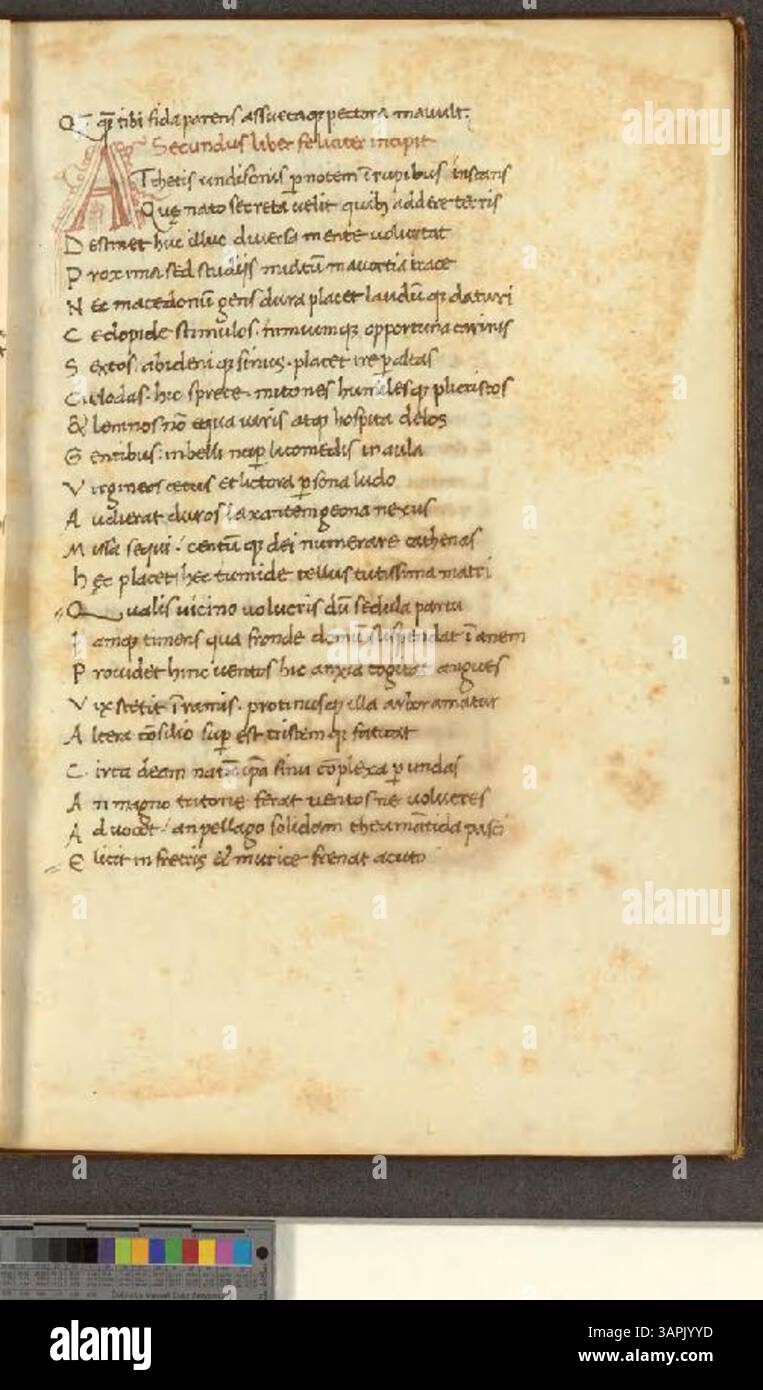 Q tibi fida parens assueta pectora mauult.
Secundus liber feliciter incipit
A Thetis undisonis noctem rupibus instans
Quę nato secreta uelit quibus addere terris
D estinet huc illuc diuersa mente uolutat
P roxima sed studiis multum mauortia trace
N ec macedonum gens dura placet laudumque daturi
C eclopide stimulos. nimiumque opportuna carinis
S extos. abidenique sinus. placet ire per altas
C icladas. hic sprete. micones humilesque
& lemnos non equa uiris atque hospita delos
G entibus. inbelli licomedis in aula
V irgineos cetus et lictora persona ludo
A udierat duros laxantem geona nexus
M issa sequi. centum que dei numerare cathenas
h ęc placet. hec tumide tellus tutissima matri
Q ualis uicino uolucris dum sedula partu
I amque timens qua fronde domum suspendat inanem
P rouidet hinc uentos hic anxia cogitat angues
V ix stetit in ramis. protinusque illa arbor amatur
A ltera consilio super est tristemque fatigat
C irca deam natum ipsa sinu complexa per undas
A n magno tritone ferat uentosne uolucres
A duocet. an pellago solidam theumantida pasci
E licit in fretis & murice frenat acuto
alamy
Image ID: 3APJYYD
www.alamy.com